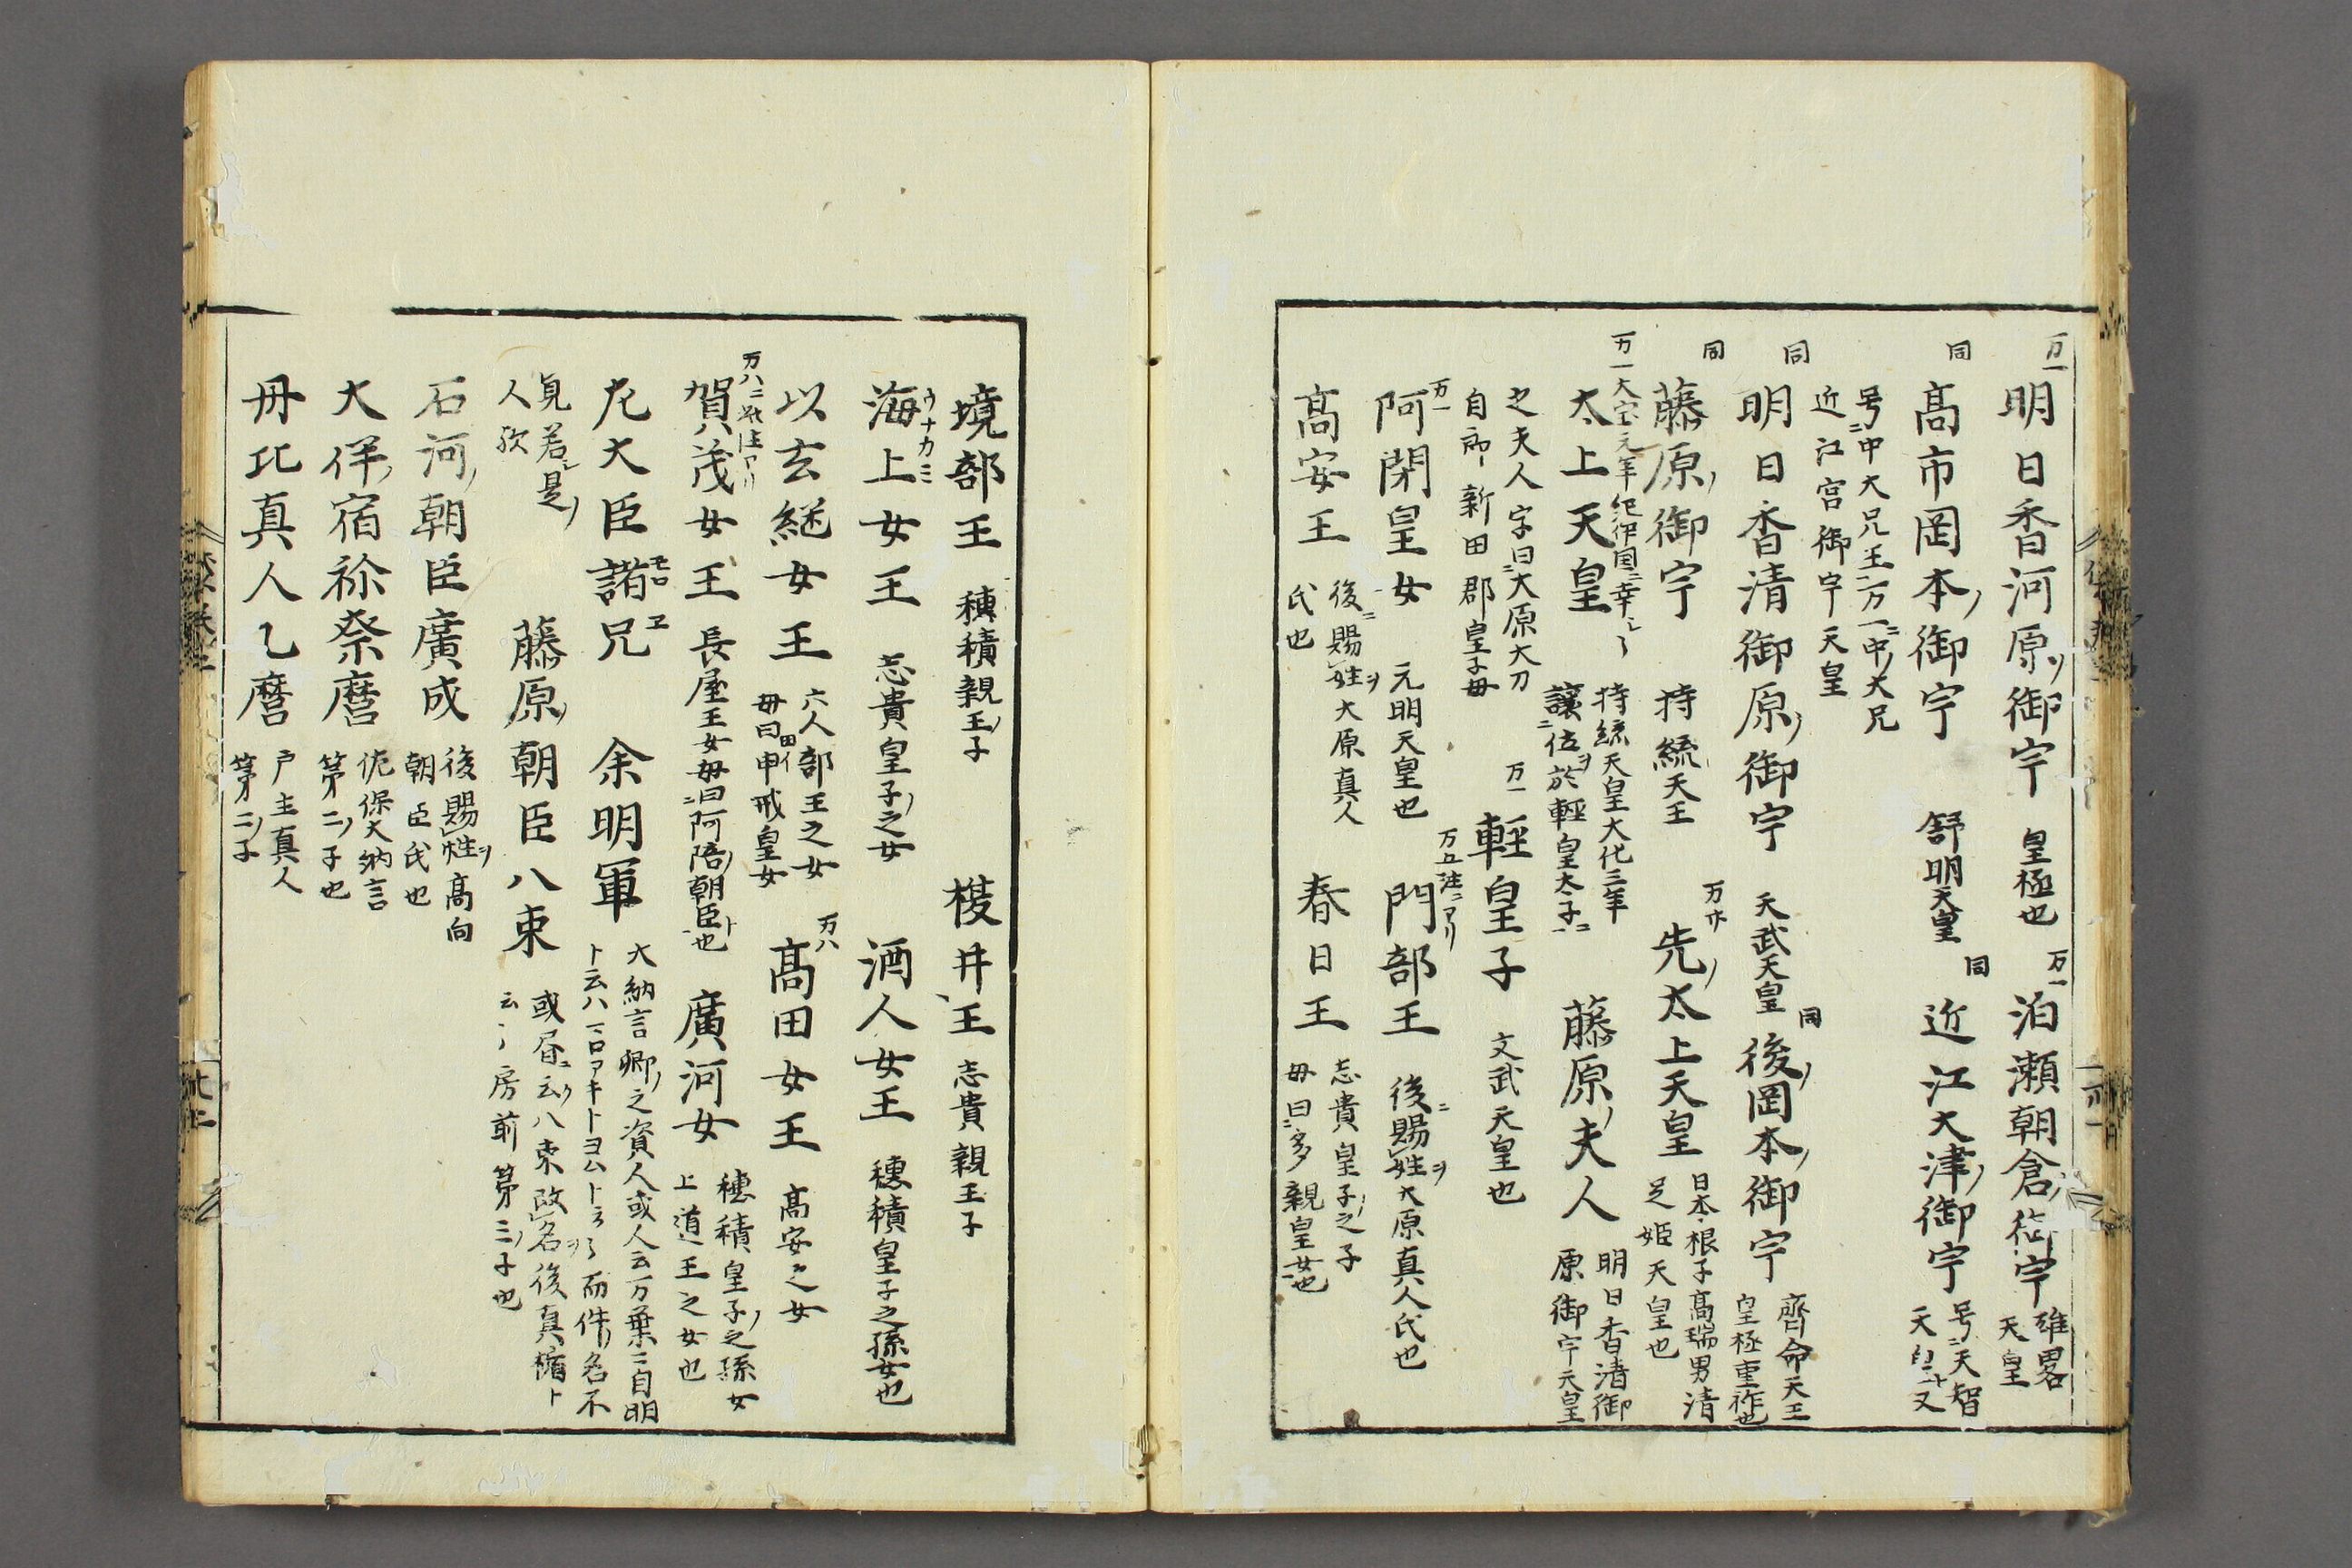 万一
明日香河原ノ御宇 皇極也
万一
泊瀬朝倉ノ御宇 雄畧天皇
同
高市岡本ノ御宇 舒明天皇
同
近江大津ノ御宇 号ニ天智天皇ト又
号ニ中大兄王一万一ニ中ノ大兄
近江宮御宇天皇
同
明日香清御原ノ御宇 天武天皇
同
後ノ岡本ノ御宇 齊命天王皇極重祚也
同
藤原ノ御宇 持統天王
万廾
先ノ太上天皇 日本根子高瑞男清足姫天皇也
万一大宝元年紀伊国ニ幸シ
太上天皇 持統天皇大化三年讓ニ位ヲ於輕皇太子一ニ
藤原ノ夫人 明日香清御原御宇天皇
之夫人字曰ニ大原大刀
自即新田郡皇子母
万一
輕皇子 文武天皇也
万一
阿閇皇女 元明天皇也
万五注ニアリ
門部王 後ニ賜姓ヲ大原真人氏也
高安王 後ニ賜姓ヲ大原真人氏也
春日王 志貴皇子ノ之子母曰ニ多親皇女也
境部王 穂積親王ノ子
榎井王 志貴親王子
ウナカミ
海上女王 志貴皇子ノ之女
酒人女王 穗積皇子之孫女也
以玄継女王 六人部王之女母曰田イ申戒皇女
万八
高田女王 高安之女
賀茂女王 長屋王女母曰ニ阿陪ノ朝臣ト也
廣河女 穗積皇子ノ之孫女上道王之女也
左大臣諸兄 モロヱ
余明軍 大納言卿ノ之資人或人云万葉ニ自明
見若シ是ノ人欤
藤原ノ朝臣八束 或屠ニ云ノ八束改名ヲ後真楯ト
云々房前第三ノ子也
石河ノ朝臣廣成 後賜姓ヲ高向朝臣氏也
大伴ノ宿祢祭麿 佐保大納言第二ノ子也
丹比真人乙麿 戸主真人第二ノ子